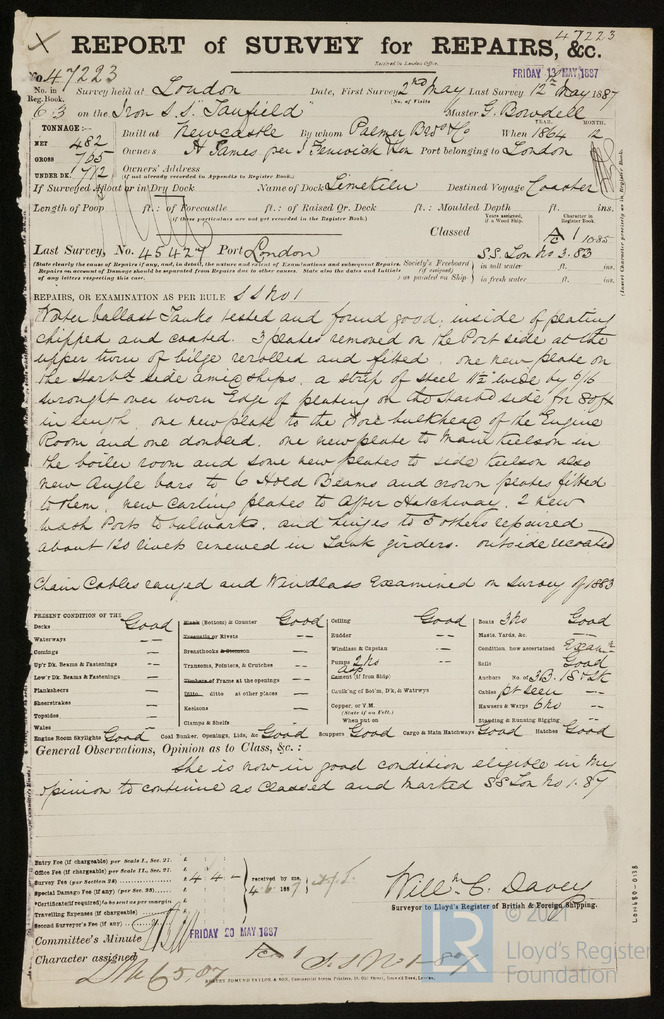 47223
REPORT of SURVEY for REPAIRS, &c.
Received in London Office,
FRIDAY 13 MAY 1887
No. 47223 Survey held at London Date, First Survey 2nd May Last Survey 12th May 1887
No. in Reg. Book. (No. of Visits
63 on the Iron S.S. "Tanfield" Master G. Bowdell
TONNAGE:— YEAR. MONTH.
NET 482 Built at Newcastle By whom Palmer Bros & Co When 1864 12
GROSS 705 Owners H James per J Fenwick & Son Port belonging to London
UNDER DK. Owners' Address
(if not already recorded in Appendix to Register Book.)
If Surveyed Afloat or in Dry Dock Name of Dock Limekiln Destined Voyage Coaster
Length of Poop ft.: of Forecastle ft.: of Raised Qr. Deck ft.: Moulded Depth ft. ins.
(if these particulars are not yet recorded in the Register Book.)
Years assigned, if a Wood Ship. Character in Register Book.
Classed A 1 10.85
Last Survey, No. 45427 Port London S.S. Lon No 3.83
(State clearly the cause of Repairs if any, and, in detail, the nature and extent of Examinations and subsequent Repairs.
Repairs on account of Damage should be separated from Repairs due to other causes. State also the dates and Initials
of any letters respecting this case.
Society's Freeboard (if assigned) as painted on Ship in salt water ft. ins.
in fresh water ft. ins.
(Insert Character precisely as in Register Book.
REPAIRS, OR EXAMINATION AS PER RULE S S No 1
Water ballast Tanks tested and found good. inside of plating
chipped and coated. 3 plates removed on the Port side at the
upper turn of bilge rerolled and fitted. one new plate on
the Starbd side amidships, a strip of Steel 11½" wide by 5/16
wrought over worn Edge of plating on the Starbd side for 80 ft
in length, one new plate to the Fore bulkhead of the Engine
Room and one doubled. one new plate to Main Keelson in
the boiler room and some new plates to side Keelson also
new Angle bars to 6 Hold Beams and crown plates fitted
to them, new Carling plates to After Hatchway, 2 new
Wash Ports to bulwarks, and hinges to 5 others repaired
about 120 rivets renewed in Tank girders. outside recoated
Chain Cables ranged and Windlass Examined on Survey of 1883
PRESENT CONDITION OF THE
Decks Good
Waterways —
Comings —
Up'r Dk. Beams & Fastenings —
Low'r Dk. Beams & Fastenings —
Planksheers —
Sheerstrakes —
Topsides —
Wales
Engine Room Skylights Good
Plank (Bottom) & Counter Good
Treenails or Rivets —
Breasthooks & Stemson —
Transoms, Pointers, & Crutches —
Timbers of Frame at the openings —
Ditto ditto at other places —
Keelsons —
Clamps & Shelfs
Coal Bunker, Openings, Lids, &c. Good
Ceiling Good
Rudder —
Windlass & Capstan —
Pumps 2 No —
Cement (if Iron Ship) —
Caulk'ng of Bot'm, D'k, & Watrwys
Copper, or Y.M.
(State if on Felt.)
When put on
Scuppers Good
Boats 3 No Good
Masts, Yards, &c. —
Condition, how ascertained Exam n
Sails Good
Anchors No. of 3 B. 1 St 1 K
Cables pt seen —
Hawsers & Warps 6 No —
Standing & Running Rigging —
Cargo & Main Hatchways Good Hatches Good
General Observations, Opinion as to Class, &c. :
She is now in good condition eligible in my
opinion to continue as Classed and Marked SS Lon No 1.87
Entry Fee (if chargeable) per Scale I., Sec. 27. £
Office Fee (if chargeable) per Scale II., Sec. 27. £
Survey Fee (per Section 28) £ 4 4 —
Special Damage Fee (if any) (per Sec. 28) £
*Certificate (if required) to be sent as per margin
Travelling Expenses (if chargeable) £
Second Surveyor's Fee (if any) £
received by me,
4.6 1887
Willm C. Davey
Surveyor to Lloyd's Register of British & Foreign Shipping.
Committee's Minute FRIDAY 20 MAY 1887
Character assigned S.S. No 1-87
ROBERT EDMUND TAYLOR & SON, Commercial Steam Printers, 19, Old Street, Goswell Road, London.
© 2021
LR
Lloyd's Register
Foundation